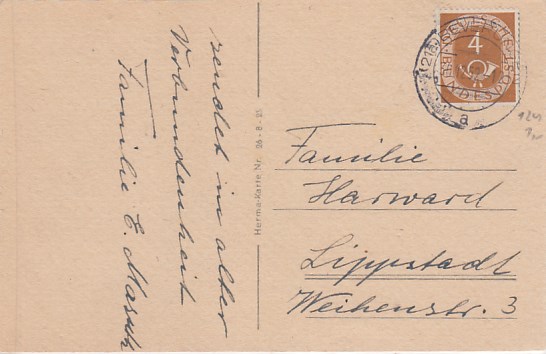 sendet in alter
Verbundenheit
Familie E. Marsch
Herma-Karte Nr. 06 - 8 - 21
4
(21a)
GEVELSBERG
a
Familie
Harward
Lippstadt
Weihenstr. 3